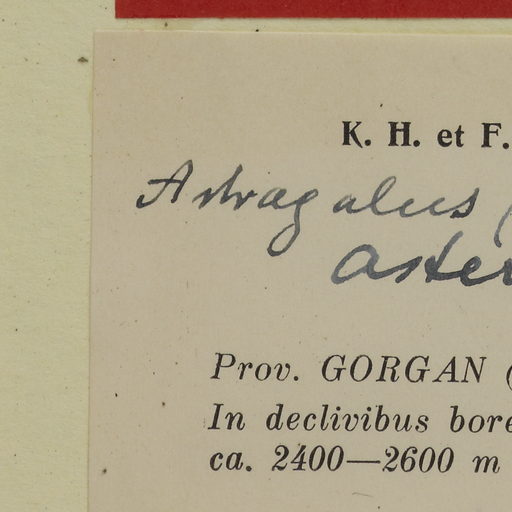 K. H. et F.
Astragalus (
aster
Prov. GORGAN (
In declivibus bore
ca. 2400—2600 m